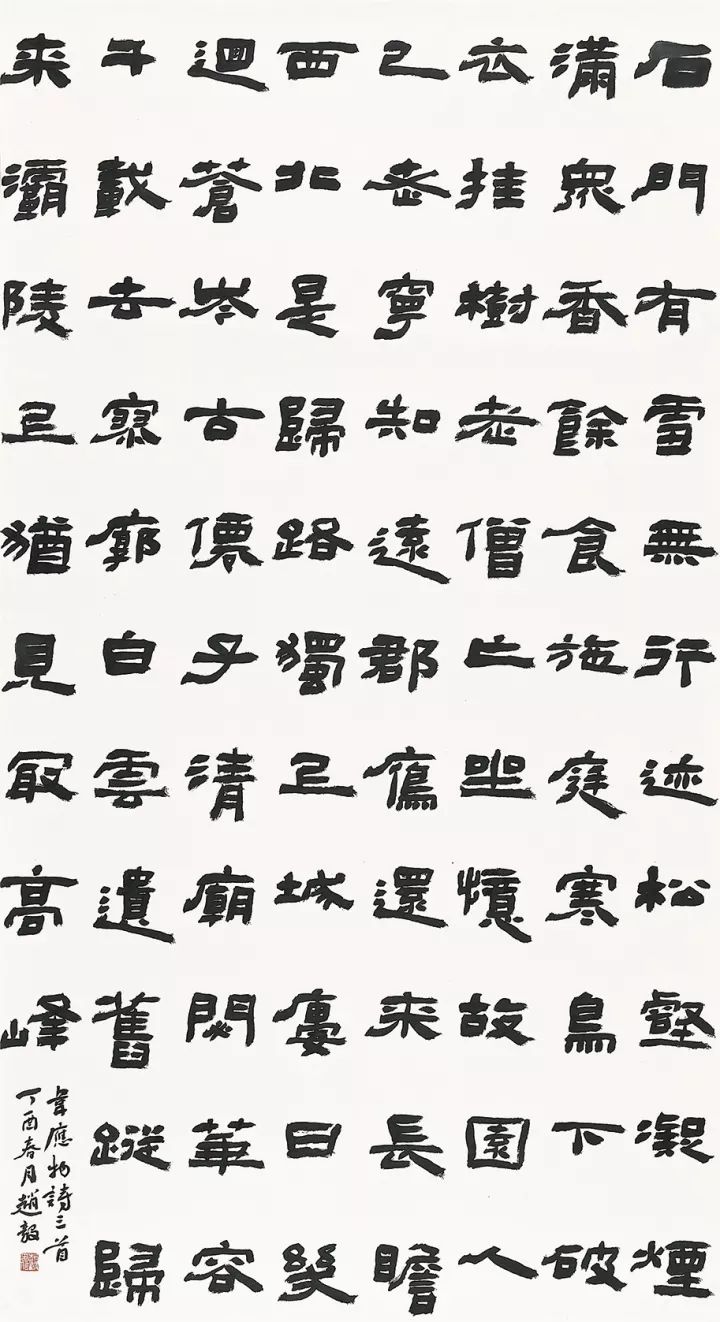 石門有雪無行迹松壑凝煙
滿衆香餘食施庭寒鳥下破
衣挂樹老僧亡坐憶故園人
已老寧知遠郡鴈還來長瞻
西北是歸路獨上城廔日幾
迴蒼岑古僊子清廟閟華容
千載去寥廓白雲遺舊蹤歸
來灞陵上猶見冣高峰
韋應物詩三首
丁酉春月趙毅